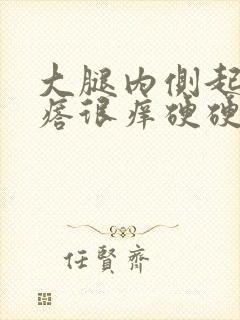 大腿内侧起
痞很痒硬硬
任賢齊